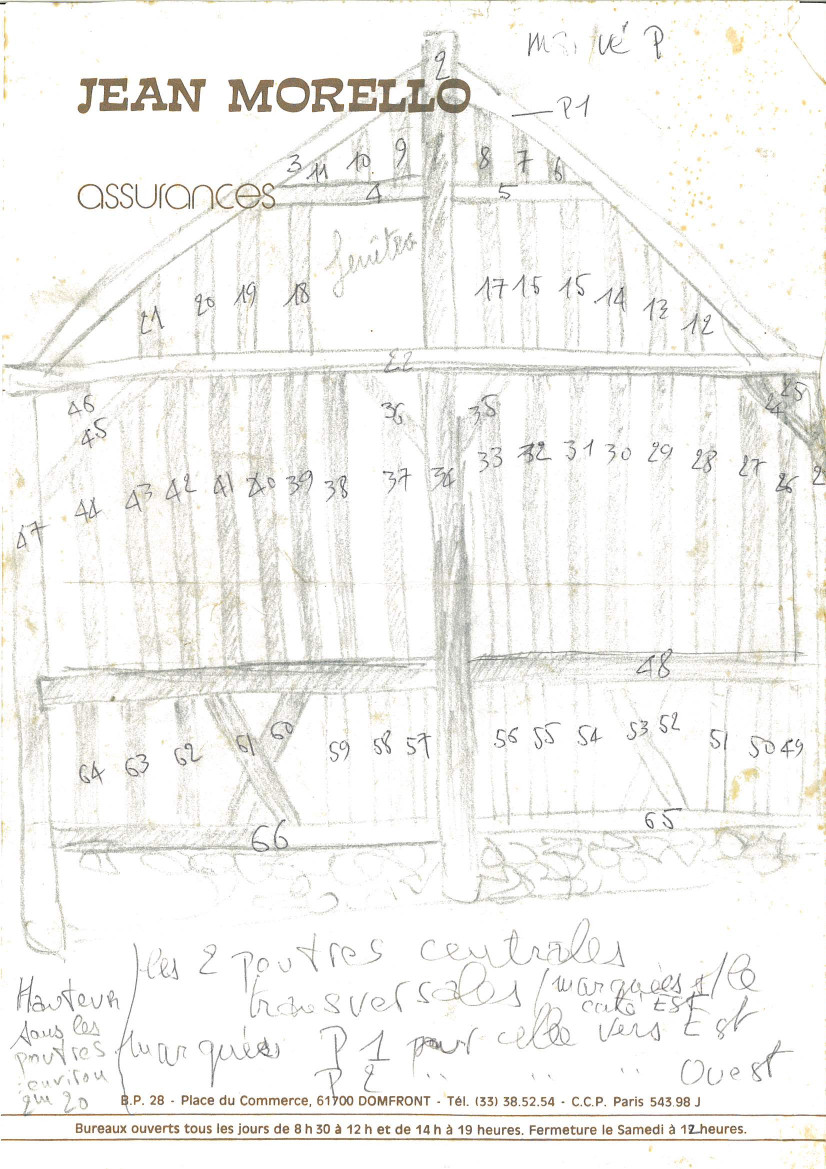 marqué P
2
JEAN MORELLO
P1
3 11 10 9 8 7 6
assurances
4 5
fenêtre
21 20 19 18 17 16 15 14 13 12
22
46 36 35 24 25
45
44 43 42 41 40 39 38 37 34 33 32 31 30 29 28 27 26
47
48
64 63 62 61 60 59 58 57 56 55 54 53 52 51 50 49
66 65
les 2 poutres centrales
transversales (marquées s/le
côté EST
marquées P1 pour celle vers Est
P2 " " " Ouest
Hauteur
sous les
poutres
environ
2m 20
B.P. 28 - Place du Commerce, 61700 DOMFRONT - Tél. (33) 38.52.54 - C.C.P. Paris 543.98 J
Bureaux ouverts tous les jours de 8 h 30 à 12 h et de 14 h à 19 heures. Fermeture le Samedi à 12 heures.